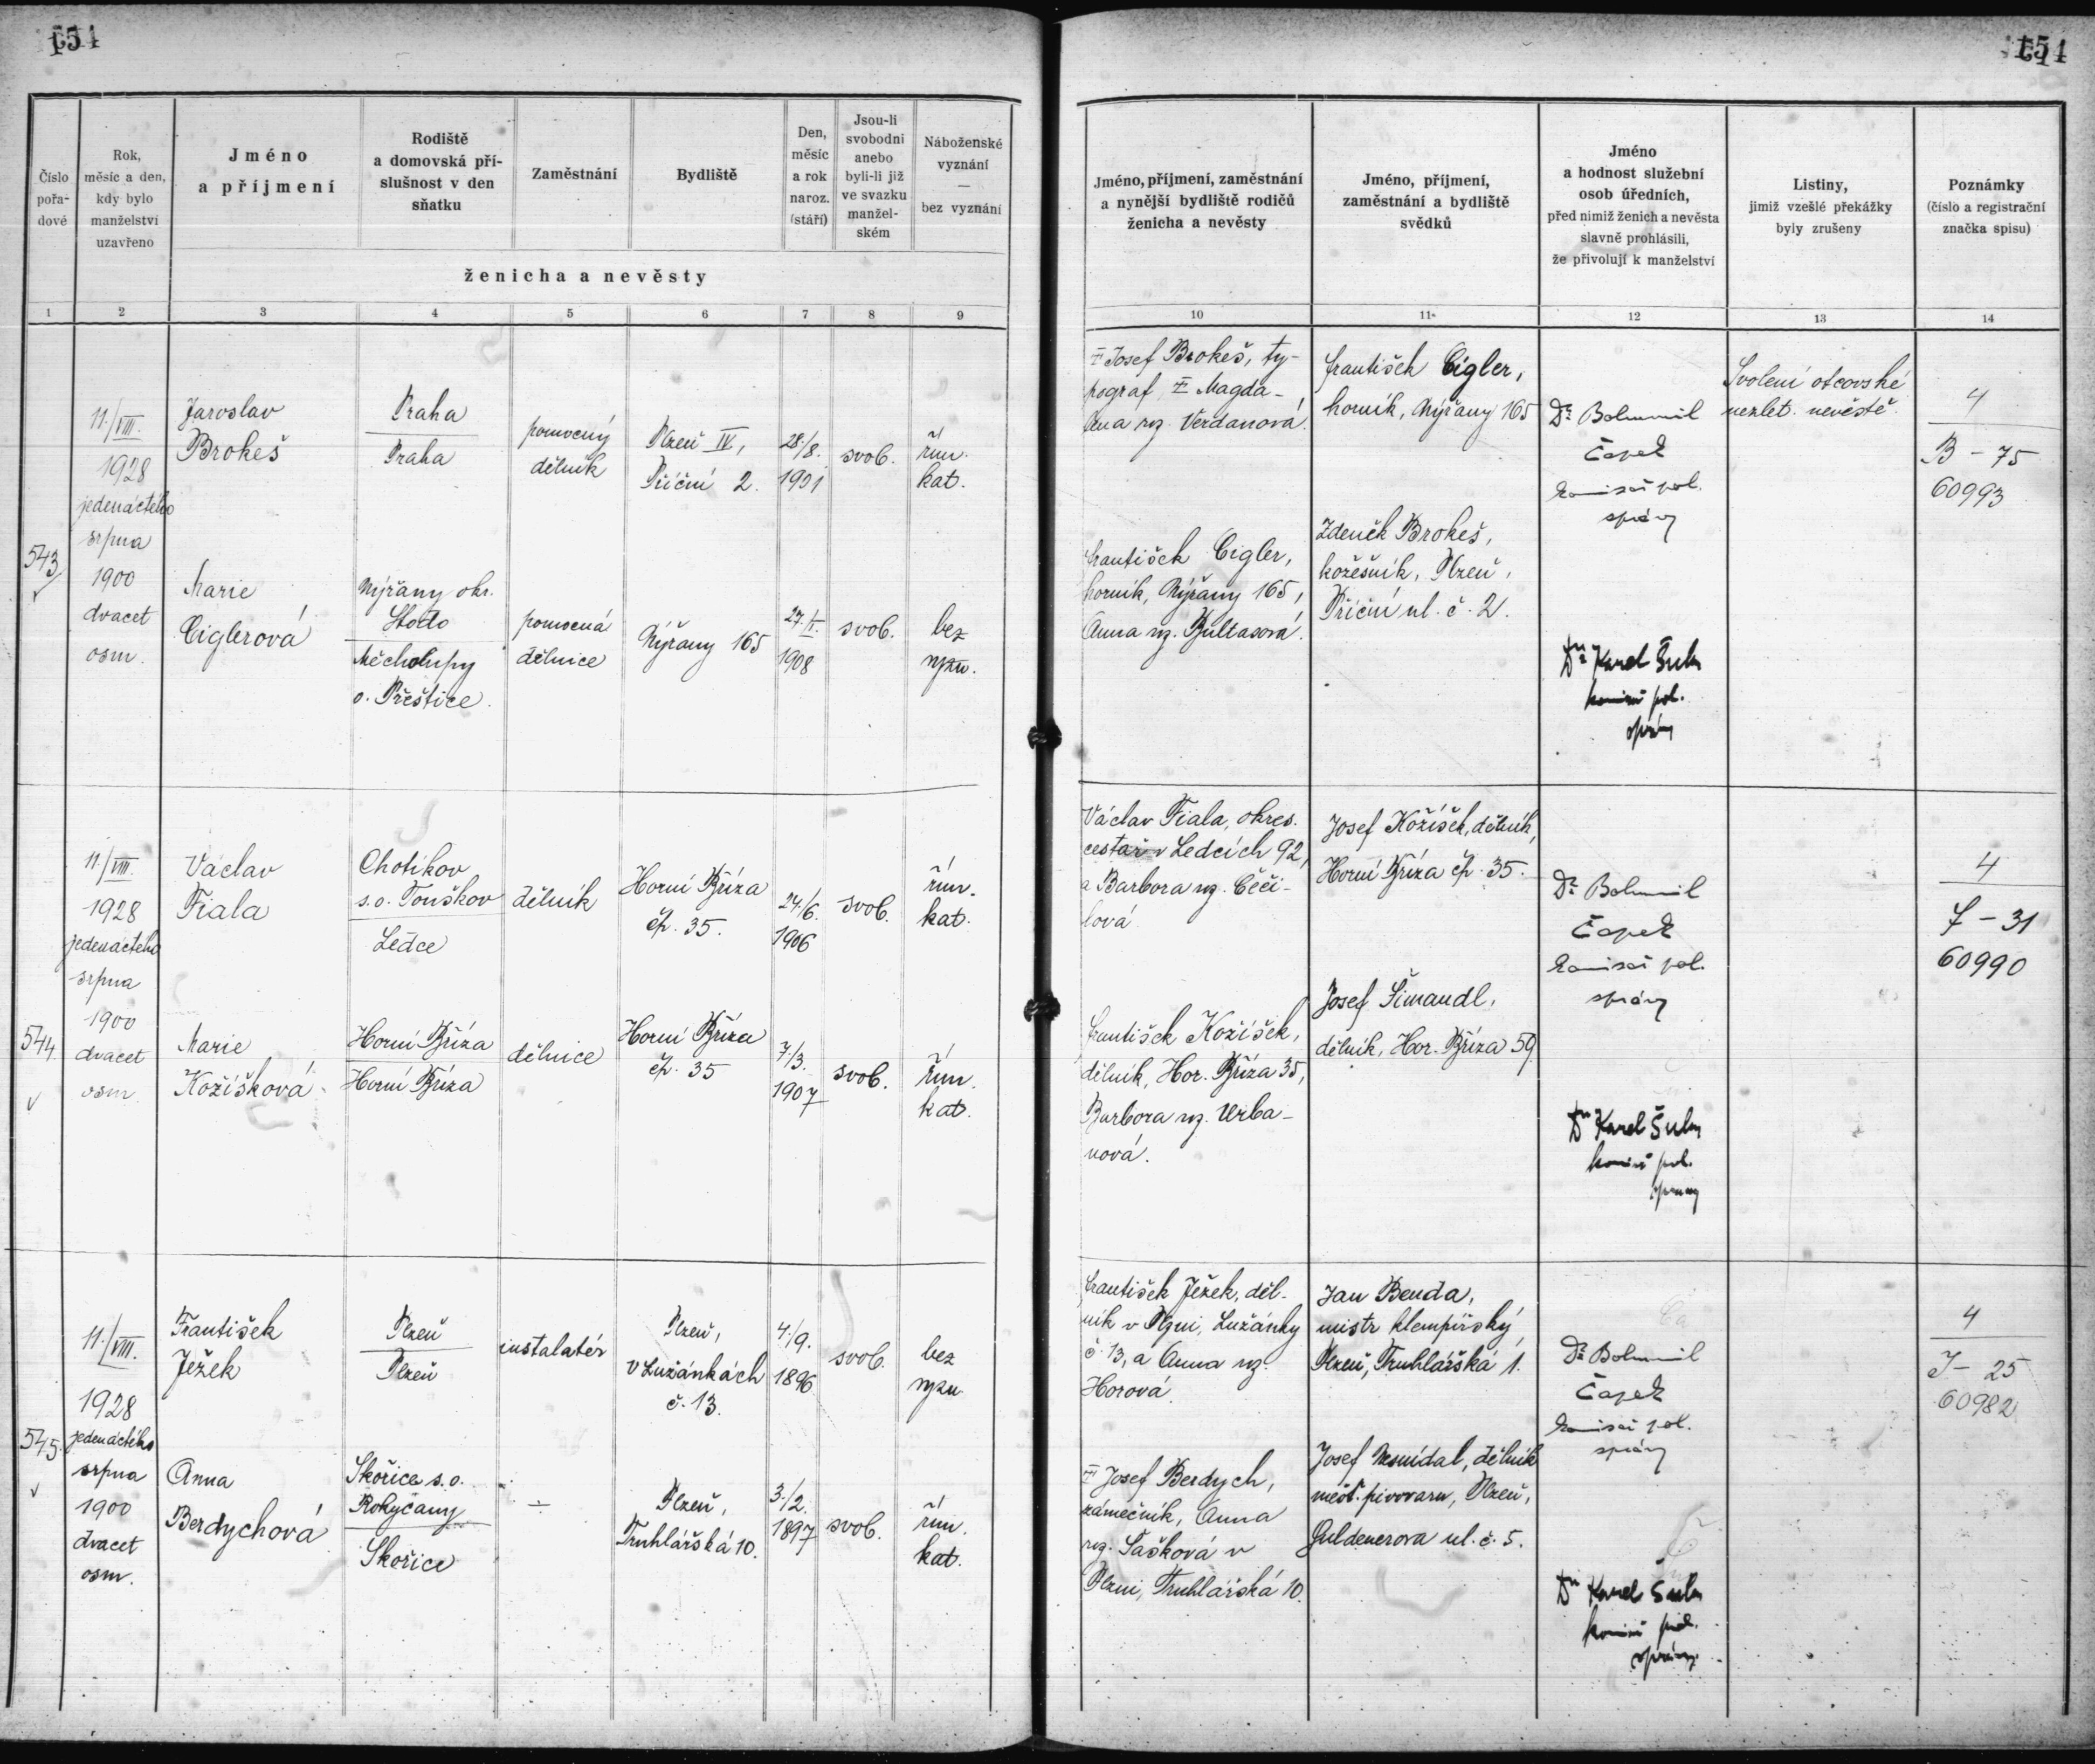 154
154
Číslo
pořa-
dové
Rok,
měsíc a den,
kdy bylo
manželství
uzavřeno
Jméno
a příjmení
Rodiště
a domovská pří-
slušnost v den
sňatku
Zaměstnání
Bydliště
Den,
měsíc
a rok
naroz.
(stáří)
Jsou-li
svobodni
anebo
byli-li již
ve svazku
manžel-
ském
Náboženské
vyznání
—
bez vyznání
ženicha a nevěsty
Jméno, příjmení, zaměstnání
a nynější bydliště rodičů
ženicha a nevěsty
Jméno, příjmení,
zaměstnání a bydliště
svědků
Jméno
a hodnost služební
osob úředních,
před nimiž ženich a nevěsta
slavně prohlásili,
že přivolují k manželství
Listiny,
jimiž vzešlé překážky
byly zrušeny
Poznámky
(číslo a registrační
značka spisu)
1 2 3 4 5 6 7 8 9
10 11 12 13 14
543
11./VIII.
1928
jedenáctého
srpna
1900
dvacet
osm.
Jaroslav
Brokeš
Praha
Praha
pomocný
dělník
Plzeň IV,
Příční 2.
28./8.
1901
svob.
řím.
kat.
Marie
Ciglerová
Nýřany okr.
Stodo
Měcholupy
o. Přeštice.
pomocná
dělnice
Nýřany 165
27./I.
1908
svob.
bez
vyzn.
Josef Brokeš, ty-
pograf, Magda-
lena roz. Verdanová.
František Cigler,
horník, Nýřany 165,
Anna roz. Bultasová.
František Cigler,
horník, Nýřany 165
Zdeněk Brokeš,
kožešník, Plzeň,
Příční ul. č. 2.
Dr. Bohumil
Čapek
komisař pol.
správy
Dr. Karel
komisař pol.
správy
Svolení otcovské
nezlet. nevěstě.
4
B - 75
60993
544
11./VIII.
1928
jedenáctého
srpna
1900
dvacet
osm
Václav
Fiala
Chotíkov
s.o. Touškov
Ledce
dělník
Horní Bříza
čp. 35.
24./6.
1906
svob.
řím.
kat.
Marie
Kožíšková
Horní Bříza
Horní Bříza
dělnice
Horní Bříza
čp. 35
7./3.
1907
svob.
řím.
kat.
Václav Fiala, okres.
cestář v Ledcích 92,
a Barbora roz. Čěči-
lová
František Kožíšek,
dělník, Hor. Bříza 35,
Barbora roz. Urba-
nová.
Josef Kožíšek, dělník,
Horní Bříza čp. 35.
Josef Šimandl,
dělník, Hor. Bříza 59.
Dr. Bohumil
Čapek
komisař pol.
správy
Dr. Karel
komisař pol.
správy
4
F - 31
60990
545.
11./VIII.
1928
jedenáctého
srpna
1900
dvacet
osm.
František
Ježek
Plzeň
Plzeň
instalatér
Plzeň,
V Lužánkách
č. 13.
4./9.
1896
svob.
bez
vyzn
Anna
Berdychová
Skořice s.o.
Rokycany
Skořice
Plzeň,
Truhlářská 10.
3./2.
1897
svob.
řím.
kat.
František Ježek, děl-
ník v Plzni, Lužánky
č. 13, a Anna roz.
Horová.
Josef Berdych,
zámečník, Anna
roz. Sašková v
Plzni, Truhlářská 10.
Jan Benda,
mistr klempířský,
Plzeň, Truhlářská 1.
Josef Nesnídal, dělník
měšť. pivovaru, Plzeň,
Guldenerova ul. č. 5.
Dr. Bohumil
Čapek
komisař pol.
správy
Dr. Karel
komisař pol.
správy
4
J - 25
60982